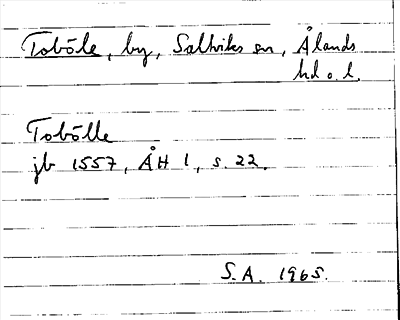 Toböle, by, Saltviks sn, Ålands
hd o. l.
Tobölle
jb 1557, ÅH 1, s. 22.
S.A. 1965.